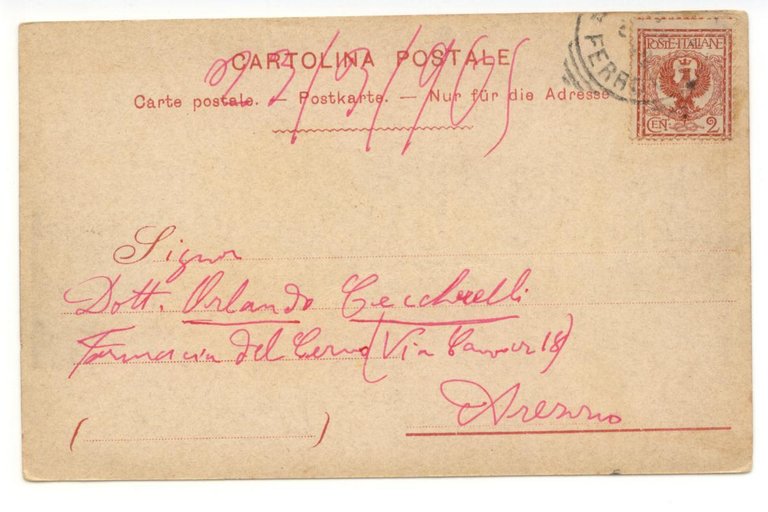 CARTOLINA POSTALE
23/3/905
Carte postale. — Postkarte. — Nur für die Adresse
POSTE·ITALIANE
CEN. 2
FERR
Signor
Dott. Orlando Ceccherelli
Farmacia del Cervo (Via Cavour 18)
Arezzo
( )